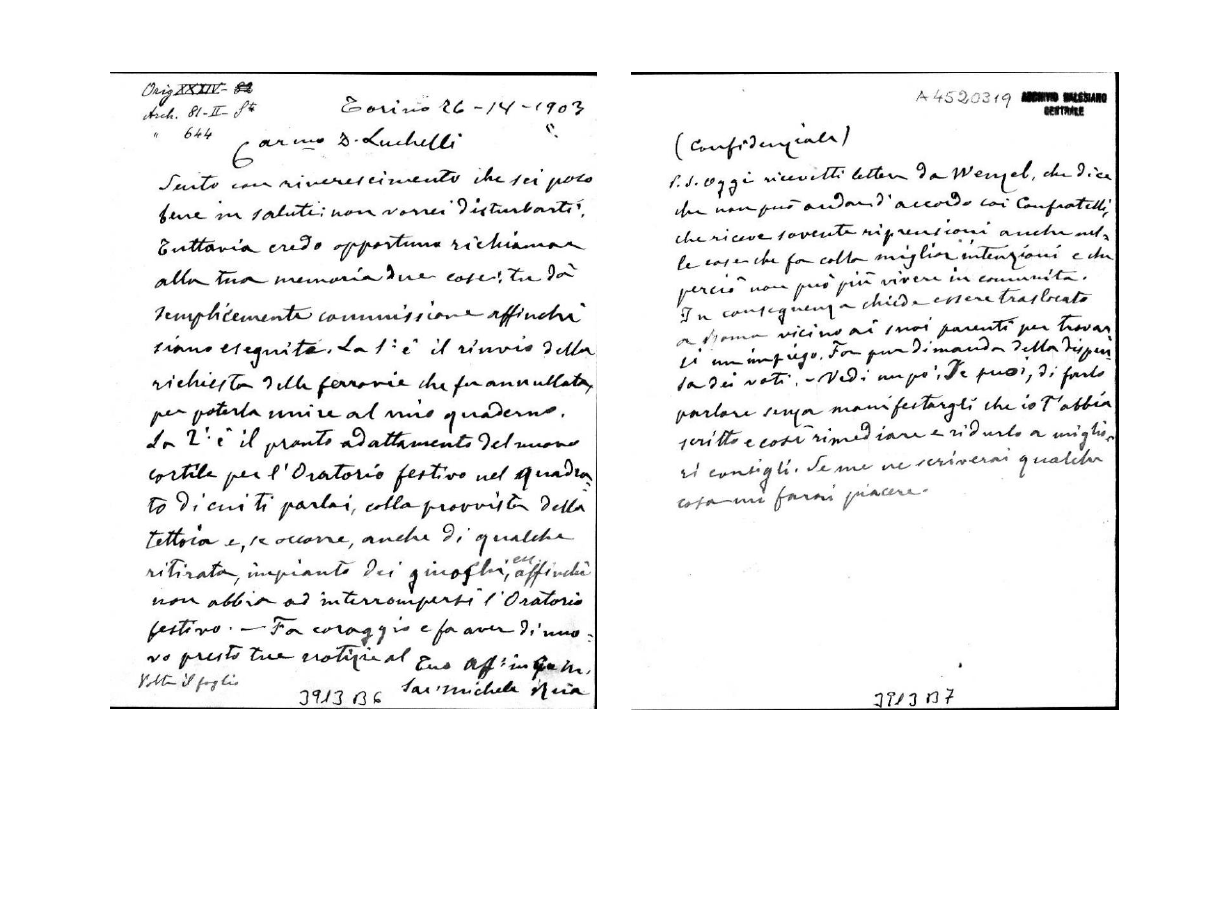 Orig XXXIV- 82
Arch. 81-II- Sta
" 644
Torino 26 -14 -1903
Car.mo D. Luchelli
Sento con rincrescimento che sei poco
bene in salute; non vorrei disturbarti.
Tuttavia credo opportuno richiamare
alla tua memoria due cose; tu dà
semplicemente commissione affinchè
siano eseguite. La 1a è il rinvio della
richiesta delle ferrovie che fu annullata,
per poterla unire al mio quaderno.
La 2a è il pronto adattamento del nuovo
cortile per l'Oratorio festivo nel quadra-
to di cui ti parlai, colla provvista della
tettoia e, se occorre, anche di qualche
ritirata, impianto dei ginochi, ecc. affinchè
non abbia ad interrompersi l'Oratorio
festivo. — Fa coraggio e fa aver di nuo-
vo presto tue notizie al Tuo aff.mo in G. e M.
Volta il foglio
Sac. Michele Rua
3913 B6
A4520319 ARCHIVIO SALESIANO
CENTRALE
(Confidenziale)
P.S. Oggi ricevetti lettera da Wenzel, che dice
che non può andar d'accordo coi Confratelli,
che riceve sovente riprensioni anche nel-
le cose che fa colla miglior intenzioni e che
perciò non può più vivere in comunità.
In conseguenza chiede essere traslocato
a Roma vicino ai suoi parenti per trovar
si un impiego. Fa pur dimanda della dispen
sa dei voti. - Vedi un po', se puoi, di farlo
parlare senza manifestargli che io t'abbia
scritto e così rimediare e ridurlo a miglio-
ri consigli. Se me ne scriverai qualche
cosa mi farai piacere.
3913 B7